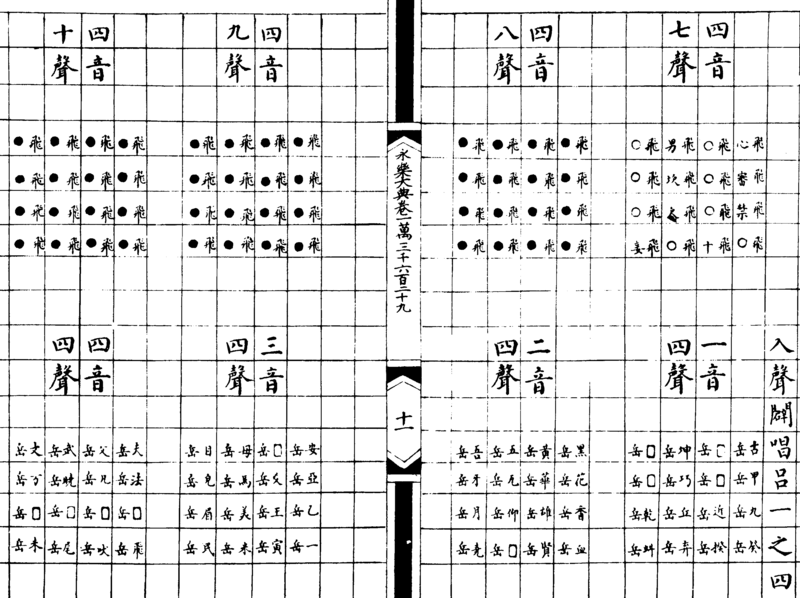 四音
七聲
飛心 飛審 飛禁 飛○
飛○ 飛○ 飛○ 飛十
飛男 飛坎 飛 飛○
飛○ 飛○ 飛○ 飛妾
四音
八聲
飛● 飛● 飛● 飛●
飛● 飛● 飛● 飛●
飛● 飛● 飛● 飛●
飛● 飛● 飛● 飛●
入聲闢唱呂一之四
一音
四聲
古岳 甲岳 九岳 癸岳
□岳 □岳 近岳 揆岳
坤岳 巧岳 丘岳 弃岳
□岳 □岳 乾岳 虯岳
二音
四聲
黑岳 花岳 香岳 血岳
黃岳 華岳 雄岳 賢岳
五岳 瓦岳 仰岳 □岳
吾岳 牙岳 月岳 堯岳
永樂大典卷一萬三千六百二十九
十一
四音
九聲
飛● 飛● 飛● 飛●
飛● 飛● 飛● 飛●
飛● 飛● 飛● 飛●
飛● 飛● 飛● 飛●
四音
十聲
飛● 飛● 飛● 飛●
飛● 飛● 飛● 飛●
飛● 飛● 飛● 飛●
飛● 飛● 飛● 飛●
三音
四聲
安岳 亞岳 乙岳 一岳
□岳 爻岳 王岳 寅岳
母岳 馬岳 美岳 米岳
目岳 皃岳 眉岳 民岳
四音
四聲
夫岳 法岳 □岳 飛岳
父岳 凡岳 □岳 吠岳
武岳 晚岳 □岳 尾岳
文岳 万岳 □岳 未岳